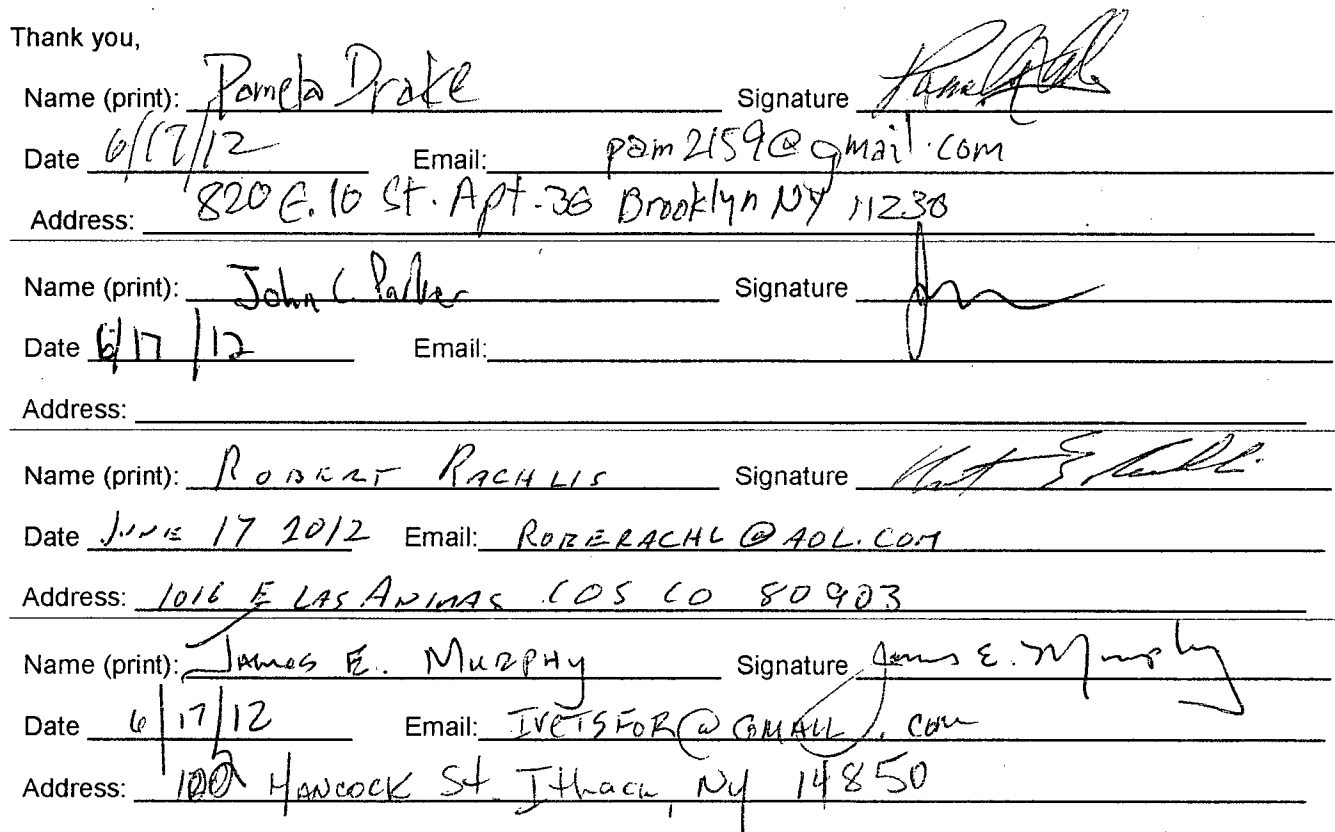 Thank you,
Name (print): Pamela Drake Signature
Date 6/17/12 Email: pam2159@gmail.com
Address: 820 E. 10 St. Apt. 3G Brooklyn NY 11230
Name (print): John C. Parker Signature
Date 6/17/12 Email:
Address:
Name (print): ROBERT RACHLIS Signature
Date JUNE 17 2012 Email: ROBERACHL@AOL.COM
Address: 1016 E LAS ANIMAS COS CO 80903
Name (print): JAMES E. MURPHY Signature James E. Murphy
Date 6/17/12 Email: IVETSFOR@GMAIL.com
Address: HANCOCK St Ithaca, NY 14850